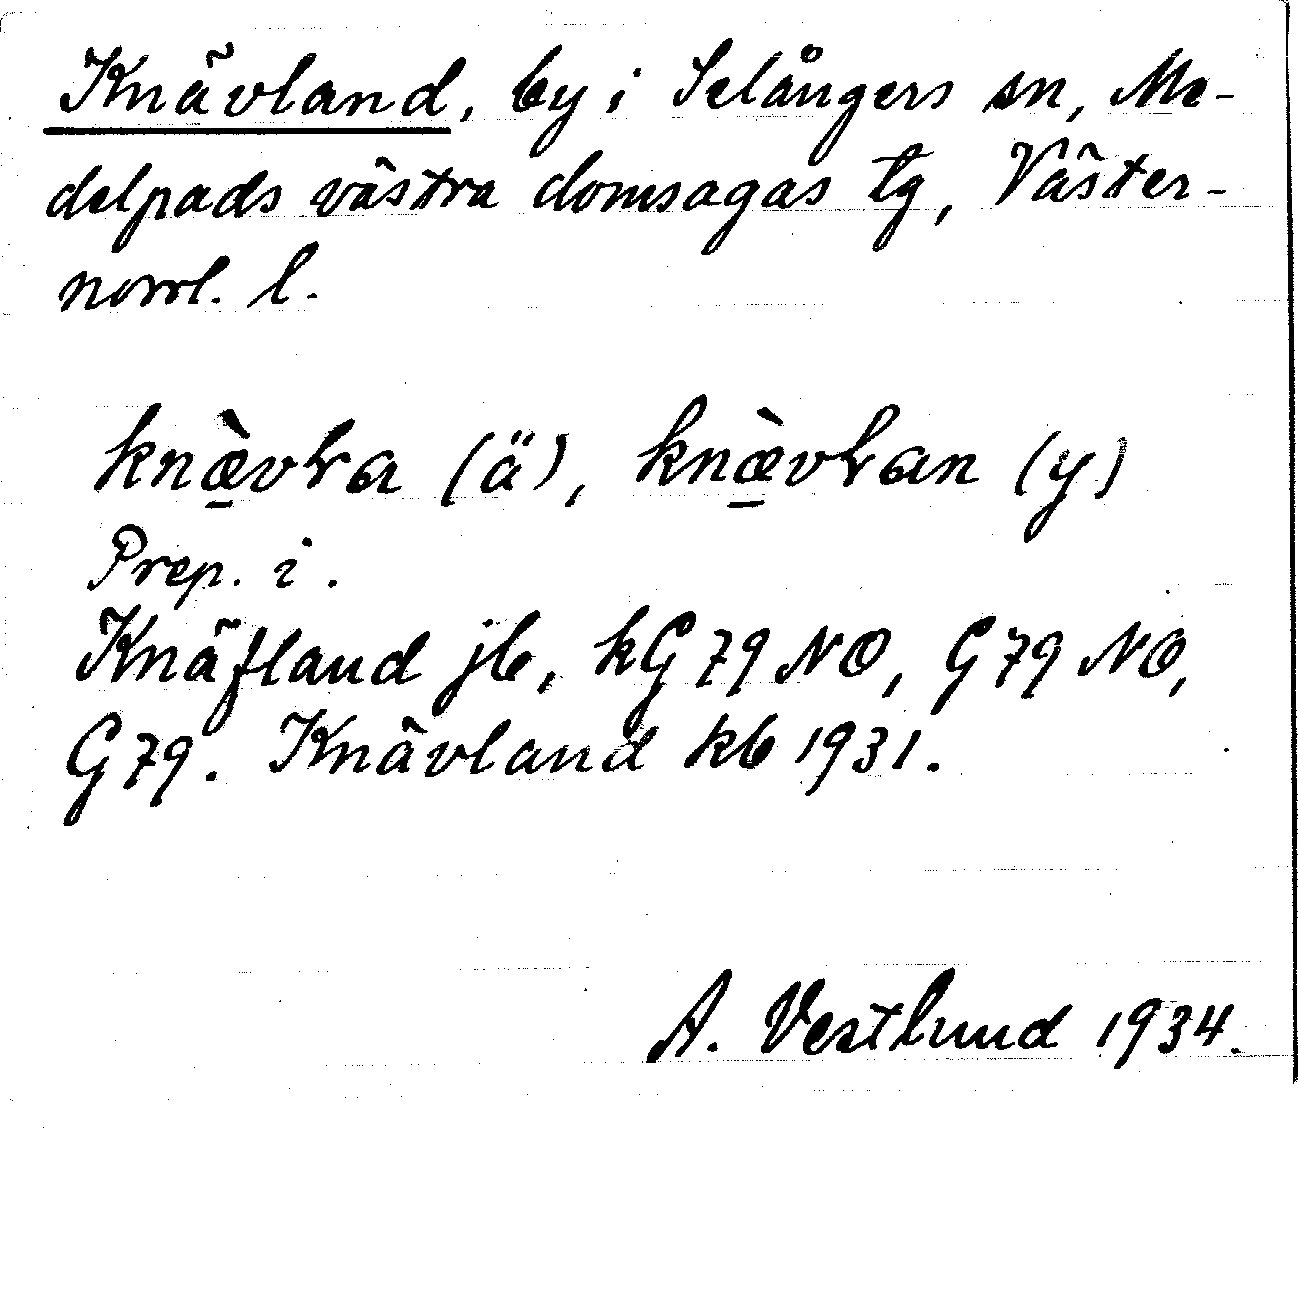 Knävland, by i Selångers sn, Me-
delpads västra domsagas tg, Väster-
norrl. l.
knæ̠̀vɫa (ä), knæ̠̀vɫan (y)
Prep. i.
Knäfland jb, kG79NO, G79NO,
G79. Knävland kb 1931.
A. Vestlund 1934.